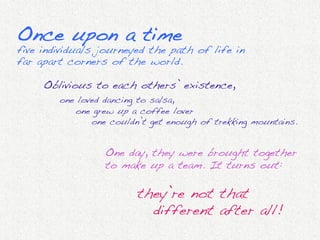 Once upon a time
five individuals journeyed the path of life in
far apart corners of the world.
Oblivious to each others' existence,
one loved dancing to salsa,
one grew up a coffee lover
one couldn't get enough of trekking mountains.
One day, they were brought together
to make up a team. It turns out:
they're not that
different after all!